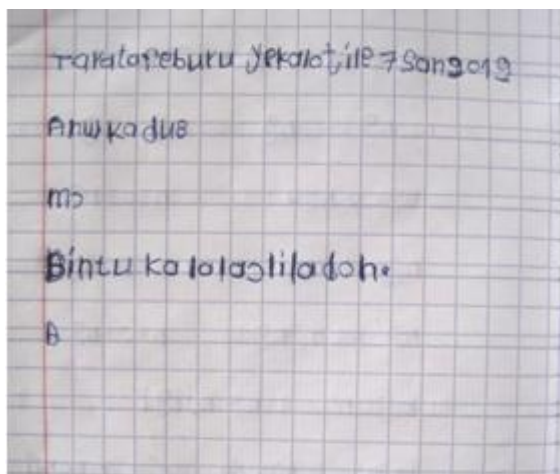 Taratafeburu yekalotile 7 San 2019
Anw ka duɛ
mɔ
Bintu ka lalagɔlila don.
A